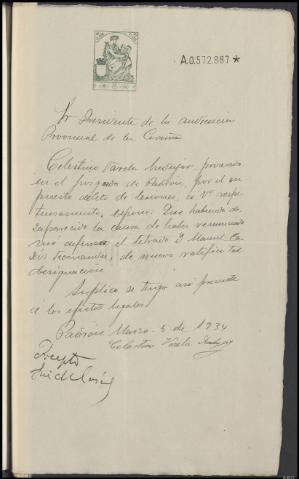 A.0.572.887*
Sr Presidente de la audiencia
Provincial de la Coruña
Celestino Varela Andújar, procesado
en el juzgado de Padrón, por el su
puesto delito de lesiones, a V. respe
tuosamente, expone: Que habiendo de
saparecido la causa de haber renunciado
mi defensa el letrado D. Manuel Ca
Fernandez, de nuevo ratifico tal
designación.
Suplica se tenga asi presente
a los efectos legales.
Padrón Marzo 5 de 1934
Celestino Varela Andujar
Acepto